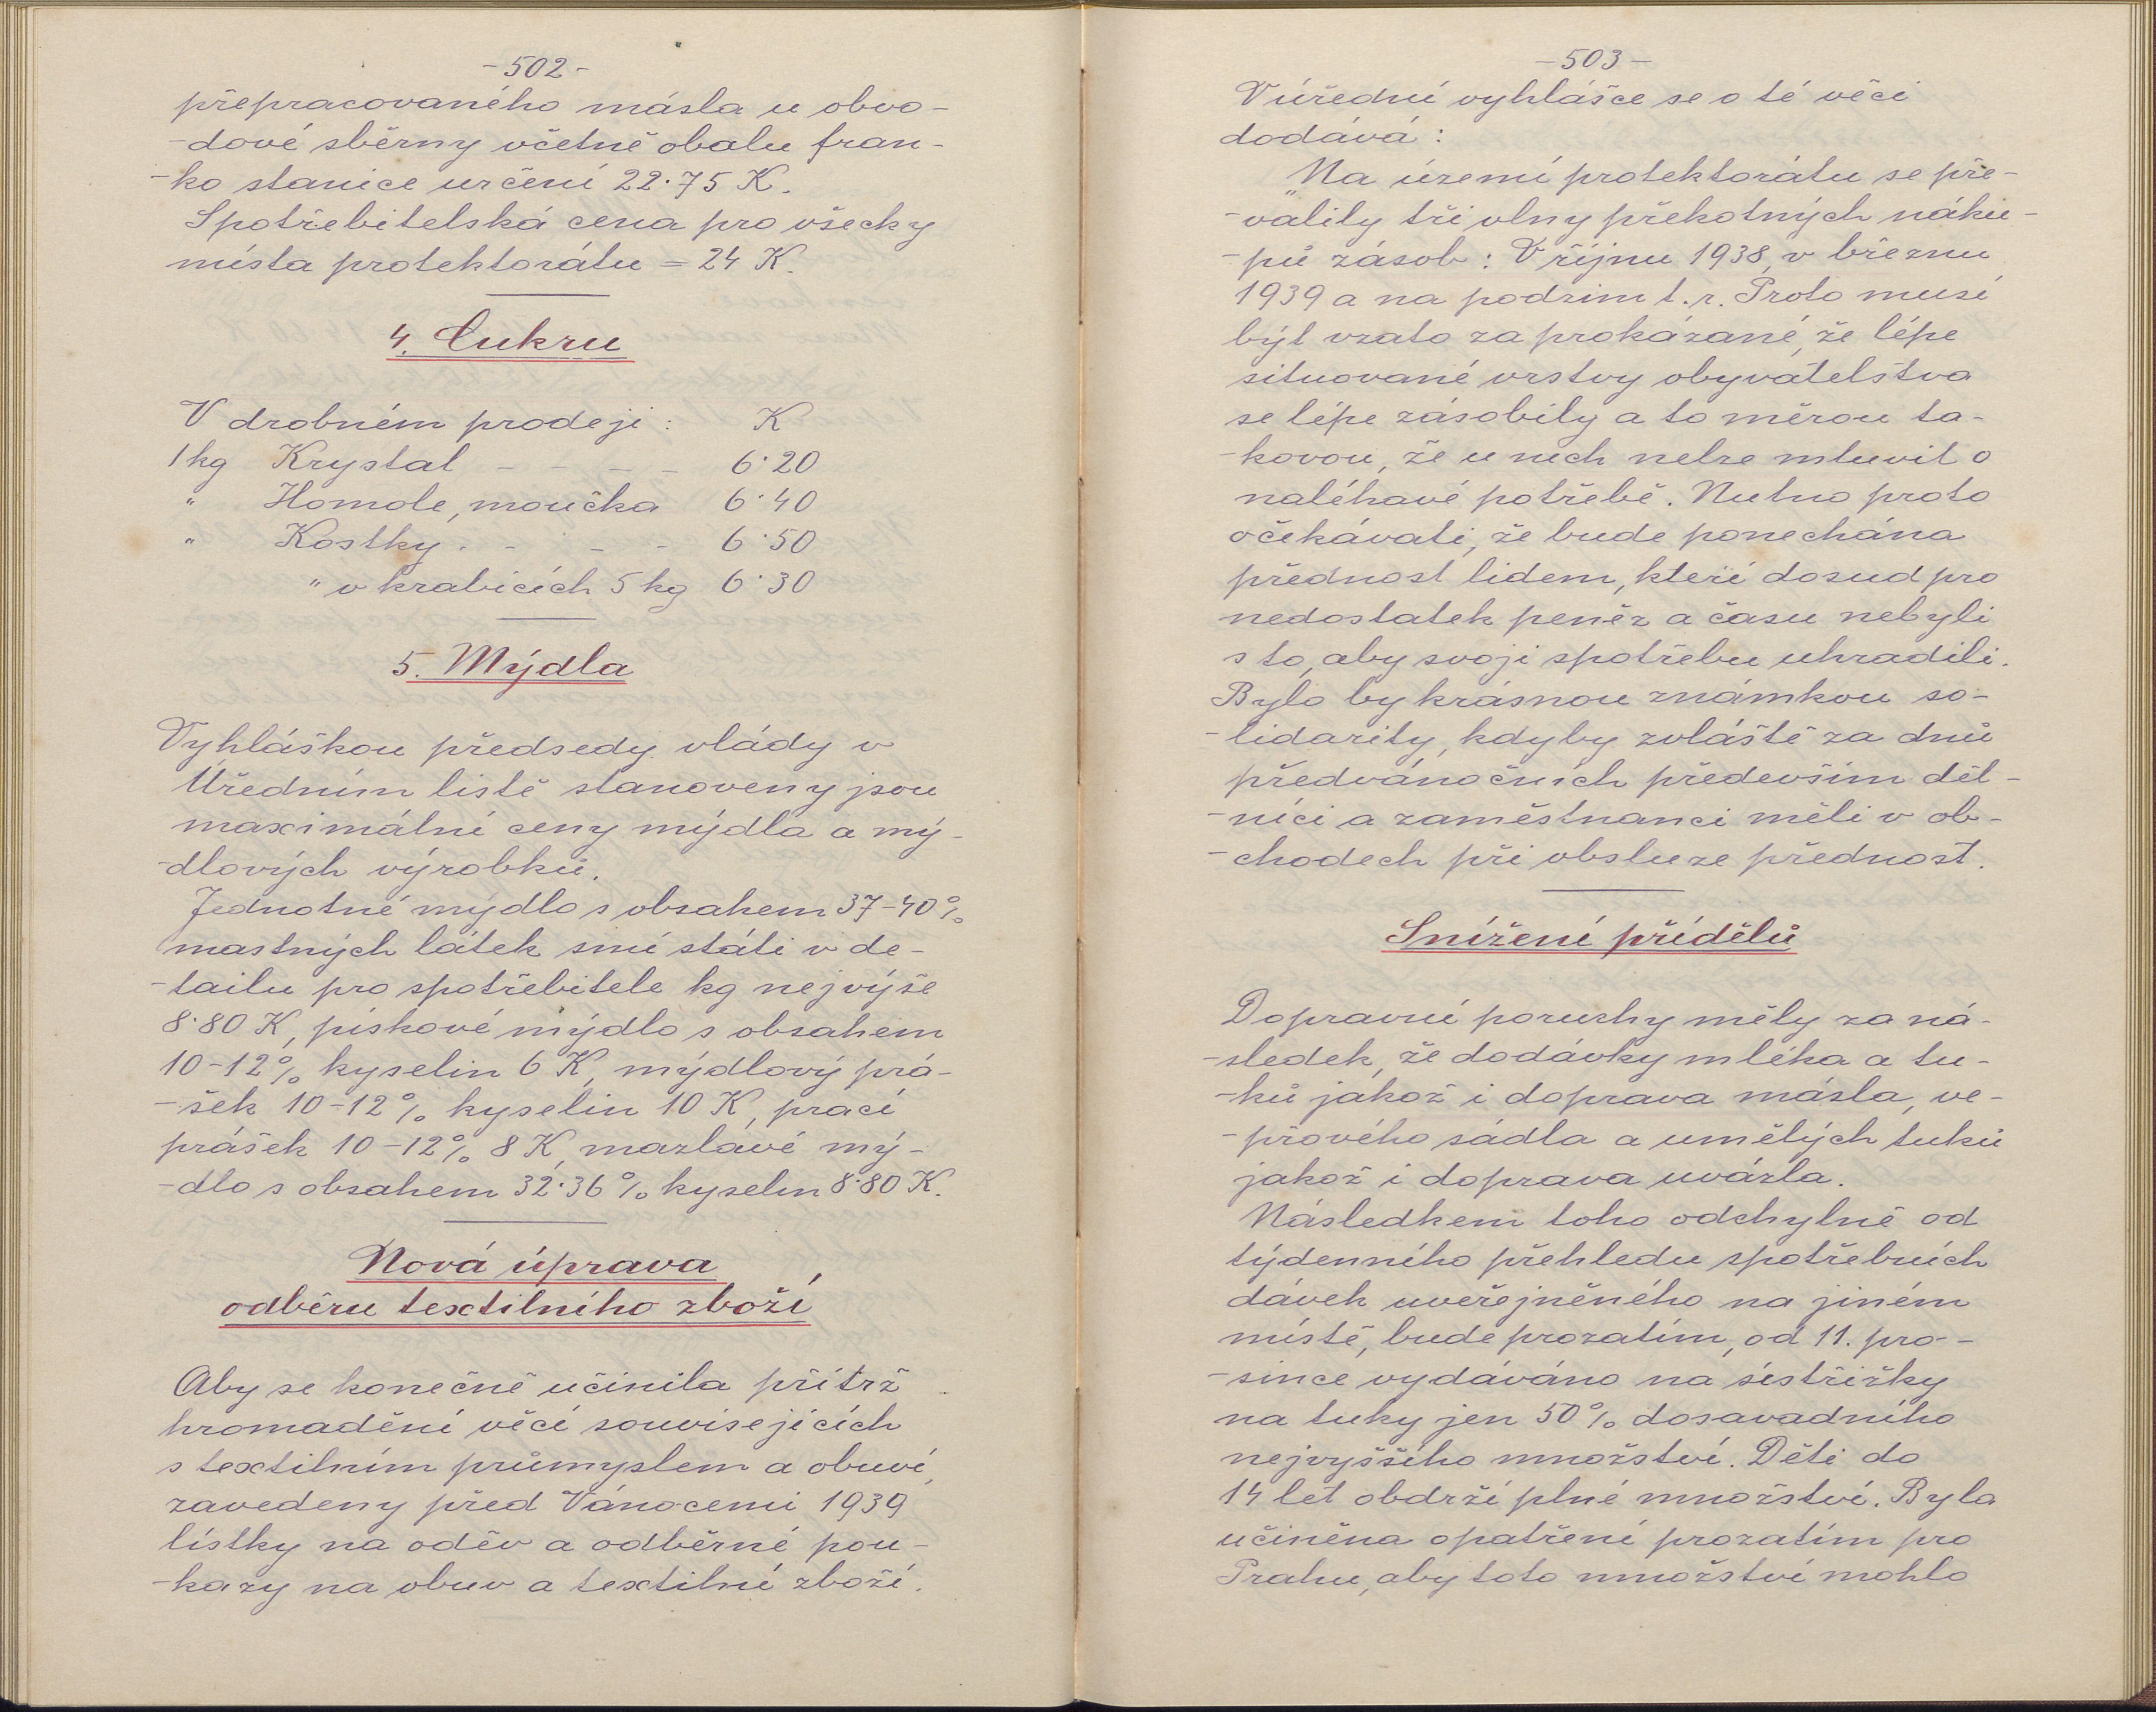 -502-
přepracovaného másla u obvo-
-dové sběrny včetně obalu fran-
-ko stanice určení 22·75 K.
Spotřebitelská cena pro všecky
místa protektorátu = 24 K.
4. Cukru
V drobném prodeji: K
1 kg Krystal - - - - 6·20
" Homole, moučka 6·40
" Kostky - - - - 6·50
" v krabicích 5 kg 6·30
5. Mýdla
Vyhláškou předsedy vlády v
Úředním listě stanoveny jsou
maximální ceny mýdla a mý-
-dlových výrobků.
Jednotné mýdlo s obsahem 37-40%
mastných látek smí státi v de-
-tailu pro spotřebitele kg nejvýše
8·80 K, pískové mýdlo s obsahem
10-12% kyselin 6 K, mýdlový prá-
-šek 10-12% kyselin 10 K, prací
prášek 10-12% 8 K, mazlavé mý-
-dlo s obsahem 32·36% kyselin 8·80 K.
Nová úprava
odběru textilního zboží
Aby se konečně učinila přítrž
hromadění věcí souvisejících
s textilním průmyslem a obuví,
zavedeny před Vánocemi 1939
lístky na oděv a odběrné pou-
-kazy na obuv a textilní zboží.
-503-
V úřední vyhlášce se o té věci
dodává:
„Na území protektorátu se pře-
-valily tři vlny překotných náku-
-pů zásob: V říjnu 1938, v březnu
1939 a na podzim t. r. Proto musí
být vzato za prokázané, že lépe
situované vrstvy obyvatelstva
se lépe zásobily a to měrou ta-
-kovou, že u nich nelze mluvit o
naléhavé potřebě. Nutno proto
očekávati, že bude ponechána
přednost lidem, kteří dosud pro
nedostatek peněz a času nebyli
s to, aby svoji spotřebu uhradili.
Bylo by krásnou známkou so-
-lidarity, kdyby zvláště za dnů
předvánočních především děl-
-níci a zaměstnanci měli v ob-
-chodech při obsluze přednost.
Snížení přídělů
Dopravní poruchy měly za ná-
-sledek, že dodávky mléka a tu-
-ků jakož i doprava másla, ve-
-přového sádla a umělých tuků
jakož i doprava uvázla.
Následkem toho odchylně od
týdenního přehledu spotřebních
dávek uveřejněného na jiném
místě, bude prozatím, od 11. pro-
-since vydáváno na sístřižky
na tuky jen 50% dosavadního
nejvyššího množství. Děti do
14 let obdrží plné množství. Byla
učiněna opatření prozatím pro
Prahu, aby toto množství mohlo